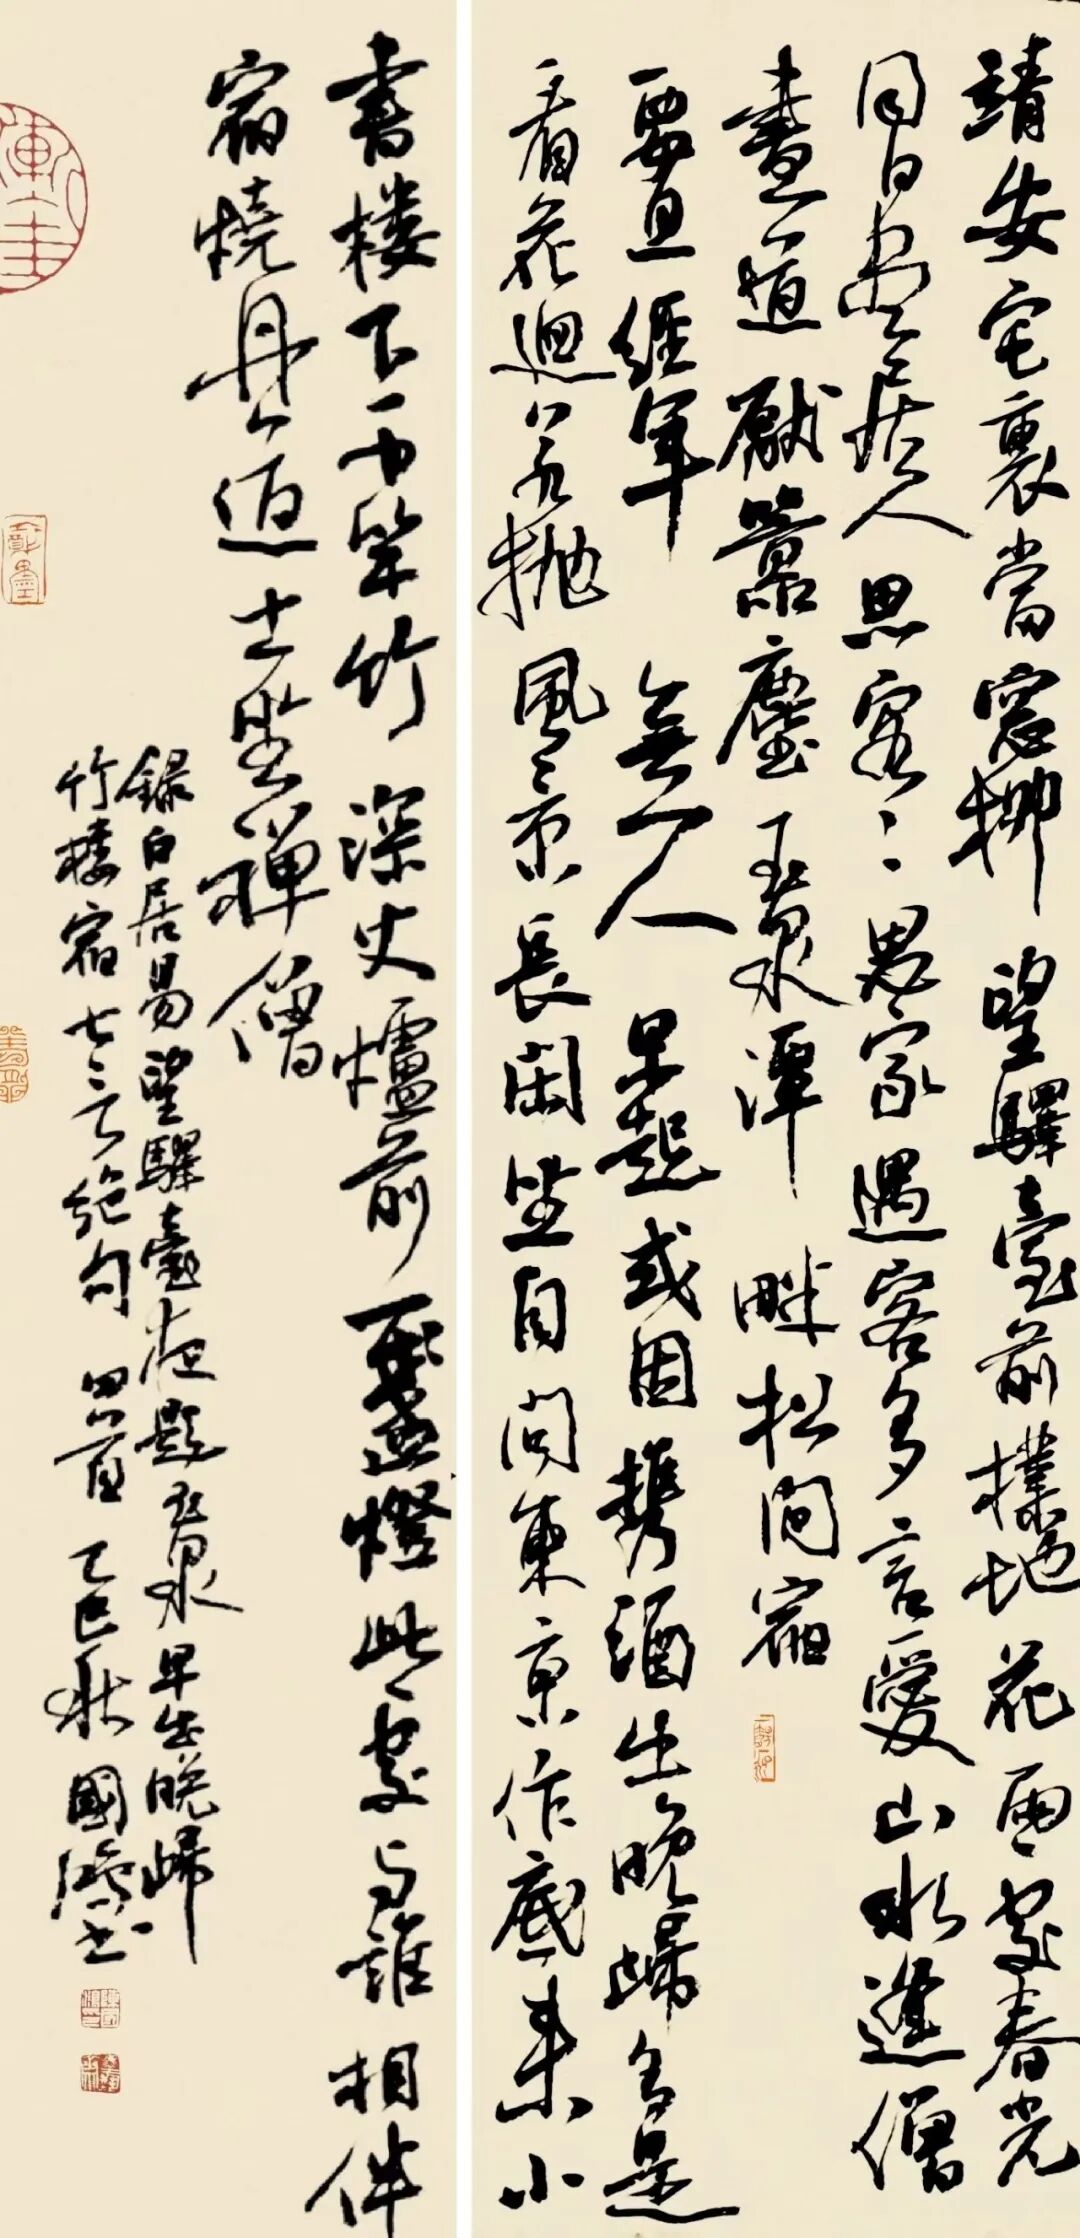 靖安宅裏當窓柳望驛臺前撲地花兩處春光
同日盡居人思客々思家遇客多言愛山水逢僧
盡道厭囂塵玉泉潭畔松間宿
要且經年無一人早起或因攜酒出晚歸多是
看花迴若抛風景長閑坐自問東京作底來小
書楼下千竿竹深火爐前一盞燈此處与誰相伴
宿燒丹道士坐禪僧
錄白居易望驛臺夜題玉泉早出晚歸
竹樓宿七言絕句四首乙巳秋國鴻書